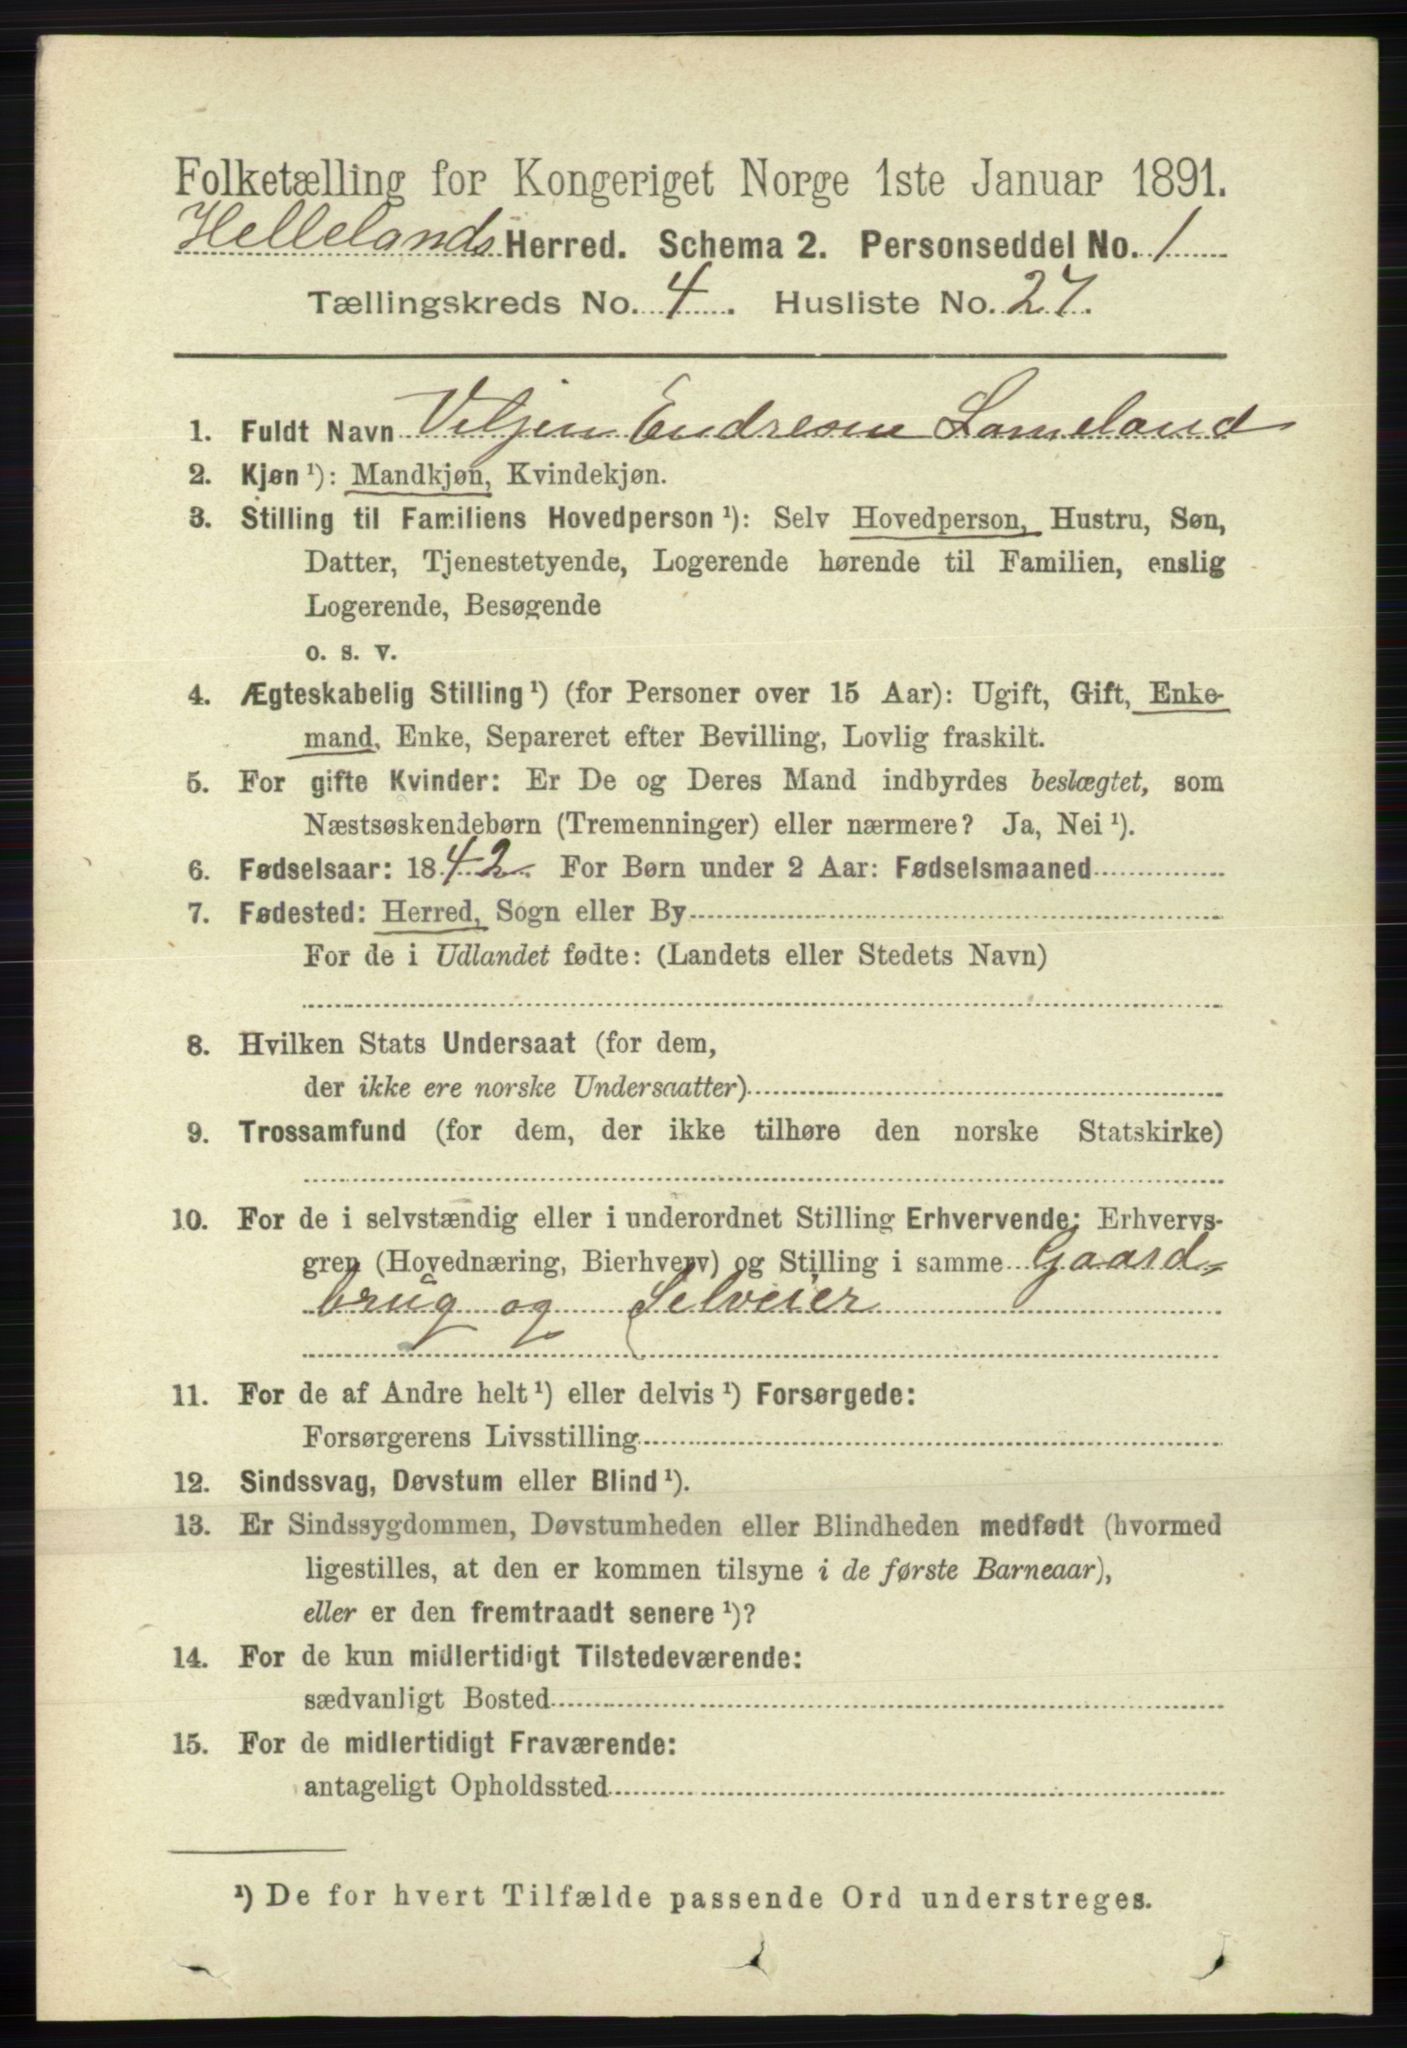 Folketælling for Kongeriget Norge 1ste Januar 1891.
Hellelands Herred. Schema 2. Personseddel No. 1
Tællingskreds No. 4. Husliste No. 27.
1. Fuldt Navn Viljen Endresen Lomeland
2. Kjøn ¹): Mandkjøn, Kvindekjøn.
3. Stilling til Familiens Hovedperson ¹): Selv Hovedperson, Hustru, Søn,
Datter, Tjenestetyende, Logerende hørende til Familien, enslig
Logerende, Besøgende
o. s. v.
4. Ægteskabelig Stilling ¹) (for Personer over 15 Aar): Ugift, Gift, Enke-
mand, Enke, Separeret efter Bevilling, Lovlig fraskilt.
5. For gifte Kvinder: Er De og Deres Mand indbyrdes beslægtet, som
Næstsøskendebørn (Tremenninger) eller nærmere? Ja, Nei ¹).
6. Fødselsaar: 1842. For Børn under 2 Aar: Fødselsmaaned
7. Fødested: Herred, Sogn eller By
For de i Udlandet fødte: (Landets eller Stedets Navn)
8. Hvilken Stats Undersaat (for dem,
der ikke ere norske Undersaatter)
9. Trossamfund (for dem, der ikke tilhøre den norske Statskirke)
10. For de i selvstændig eller i underordnet Stilling Erhvervende: Erhvervs-
gren (Hovednæring, Bierhverv) og Stilling i samme Gaard-
brug og Selveier
11. For de af Andre helt ¹) eller delvis ¹) Forsørgede:
Forsørgerens Livsstilling
12. Sindssvag, Døvstum eller Blind ¹).
13. Er Sindssygdommen, Døvstumheden eller Blindheden medfødt (hvormed
ligestilles, at den er kommen tilsyne i de første Barneaar),
eller er den fremtraadt senere ¹)?
14. For de kun midlertidigt Tilstedeværende:
sædvanligt Bosted
15. For de midlertidigt Fraværende:
antageligt Opholdssted
¹) De for hvert Tilfælde passende Ord understreges.